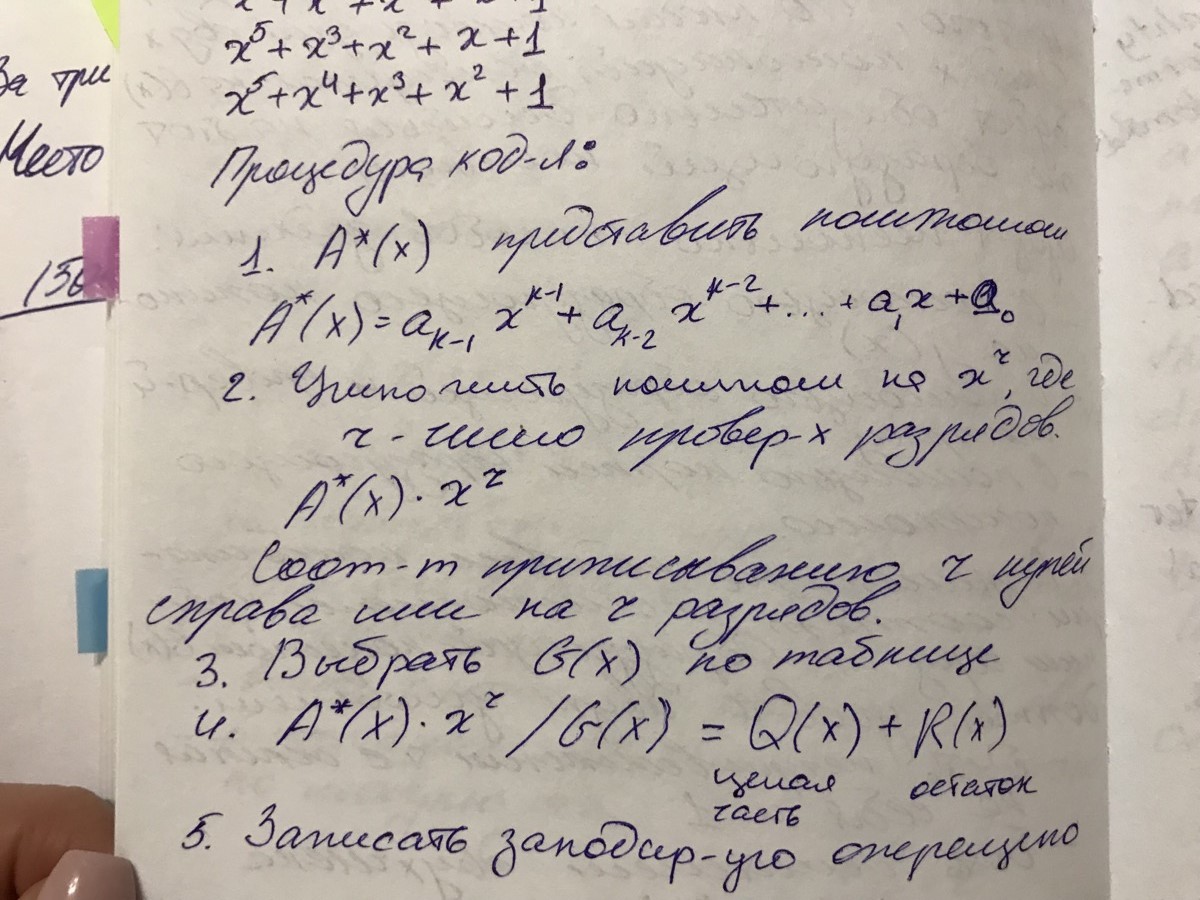 x⁵ + x³ + x² + x + 1
x⁵ + x⁴ + x³ + x² + 1
Процедура код-я:
1. A*(x) представить полиномом
A*(x) = aₖ₋₁ xᵏ⁻¹ + aₖ₋₂ xᵏ⁻² + ... + a₁x + a₀
2. Умножить полином на xʳ, где
r - число провер-х разрядов.
A*(x) · xʳ
Соот-т приписыванию r нулей
справа или на r разрядов.
3. Выбрать G(x) по таблице
4. A*(x) · xʳ / G(x) = Q(x) + R(x)
целая остаток
часть
5. Записать закодир-ую
За три
Место
156